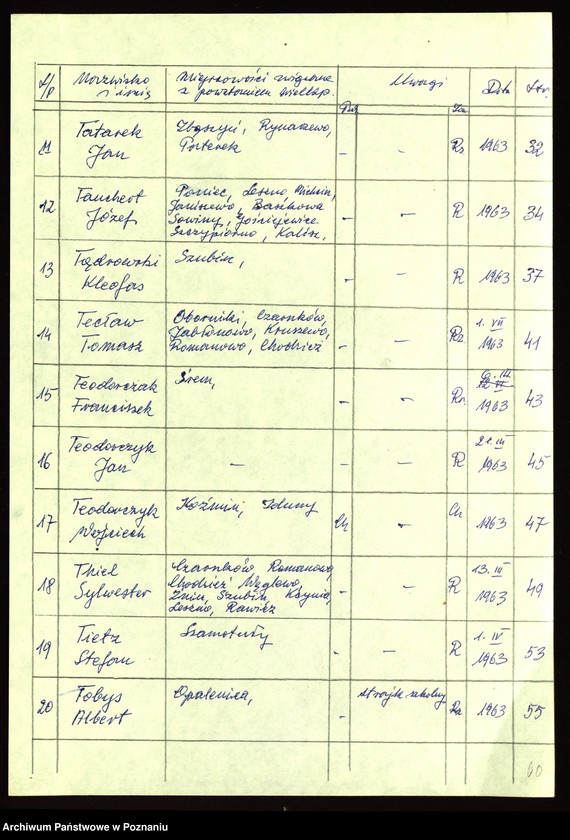 L/p Nazwisko i imię Miejscowości związane z powstaniem wielkp. Uwagi Data Str.
11 Tatarek Jan Zbąszyń, Rynarzewo, - - 1963 32
12 Tauchert Józef Poniec, Leszno, - - R 1963 34
Janiszewo,
Sowiny,
Szczypiorno, Kalisz.
13 Kleofas Szubin, - - R 1963 37
14 Tecław Tomasz Oborniki, Czarnków, - - 1. VII 1963 41
Jabłonowo, Kruszewo,
Romanowo, Chodzież
15 Teodorczak Franciszek Śrem, - - 1963 43
16 Teodorczyk Jan - - - R 21. III 1963 45
17 Teodorczyk Wojciech Koźmin, Zduny Ch - Ch 1963 47
18 Thiel Sylwester Czarnków, Romanowo, - - R 13. III 1963 49
Chodzież
Żnin, Szubin, Kcynia,
Leszno, Rawicz
19 Tietz Stefan Szamotuły - - R 1. IV 1963 53
20 Tobys Albert Opalenica, - strajk szkolny 1963 55
60
Archiwum Państwowe w Poznaniu